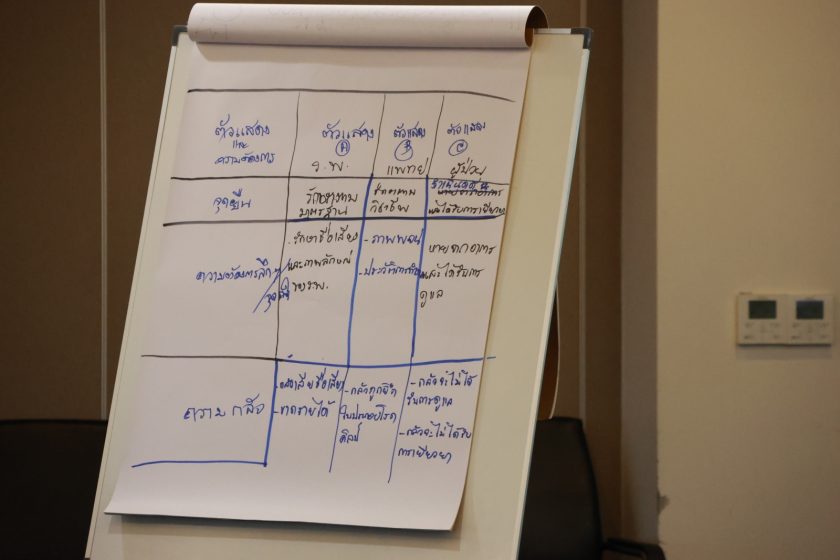 ตัวแสดง
และ
ความต้องการ
ตัวแสดง
A
ร.พ.
ตัวแสดง
B
แพทย์
ตัวแสดง
C
ผู้ป่วย
จุดยืน
รักษาตาม
มาตรฐาน
รักษาตาม
วิชาชีพ
และได้รับการเยียวยา
ความต้องการลึกๆ
- รักษาชื่อเสียง
และภาพลักษณ์
ของรพ.
- ภาพพจน์
- ประวัติการทำ
หายจากอาการ
และได้รับการ
ดูแล
ความกลัว
- กลัวเสียชื่อเสียง
- ขาดรายได้
- กลัวถูกยึด
ใบประกอบโรค
ศิลป์
- กลัวจะไม่ได้
รับการดูแล
- กลัวจะไม่ได้รับ
การเยียวยา